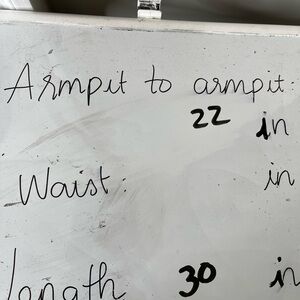 Armpit to armpit:
22 in
Waist: in
Length 30 in